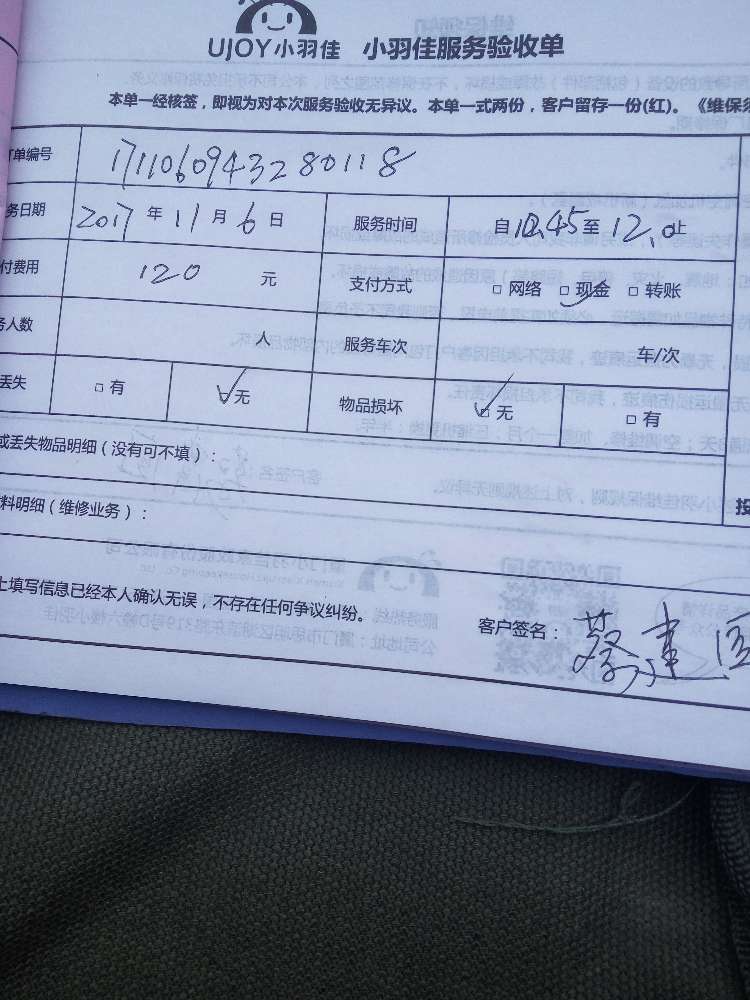 UJOY小羽佳 小羽佳服务验收单
本单一经核签，即视为对本次服务验收无异议。本单一式两份，客户留存一份(红)。《维保须
订单编号 1711060943280118
务日期 2017 年 11 月 6 日 服务时间 自10.45至12.0止
付费用 120 元 支付方式 □ 网络 □ 现金 □ 转账
务人数 人 服务车次 车/次
丢失 □ 有 □ 无 物品损坏 □ 无 □ 有
或丢失物品明细（没有可不填）：
料明细（维修业务）：
投
上填写信息已经本人确认无误，不存在任何争议纠纷。
客户签名：蔡建